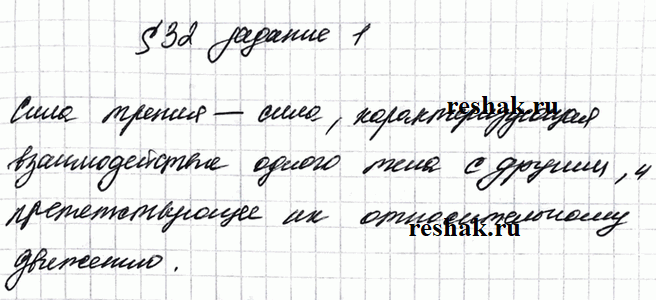 § 32 задание 1
Сила трения — сила, характеризующая
взаимодействие одного тела с другим, и
препятствующее их относительному
движению.
reshak.ru
reshak.ru